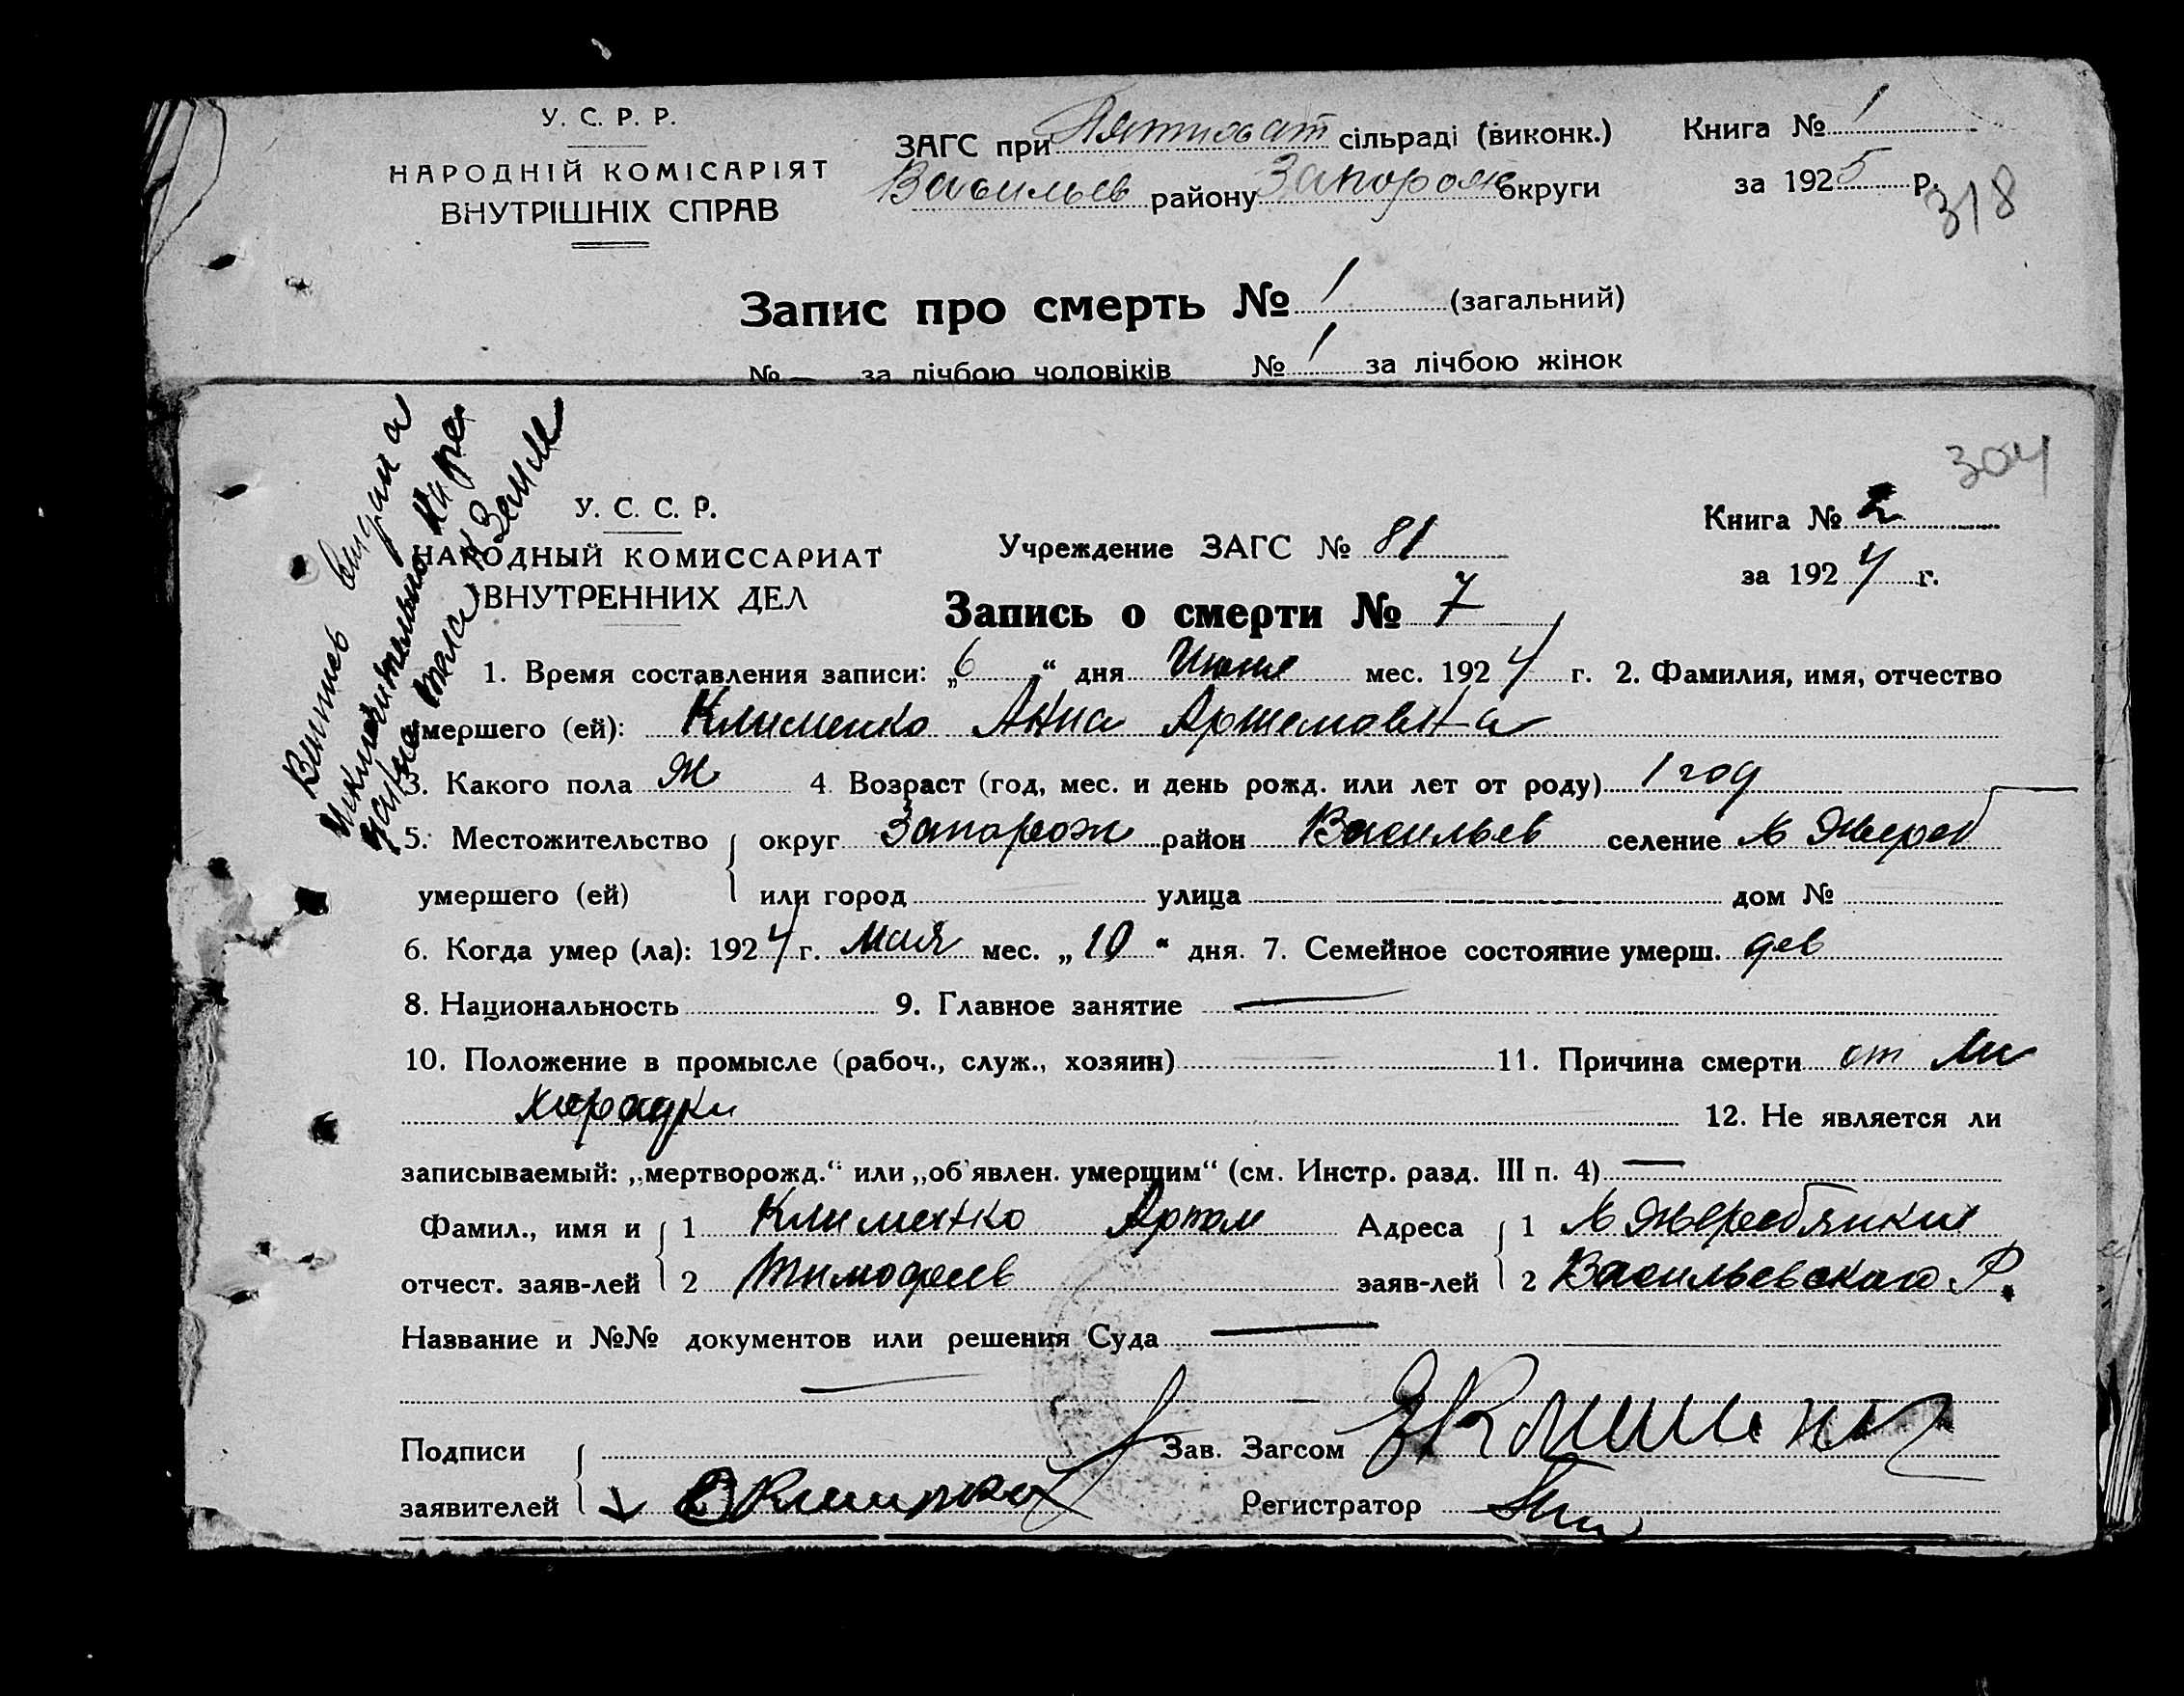 У. С. Р. Р.
НАРОДНІЙ КОМІСАРІЯТ
ВНУТРІШНІХ СПРАВ
ЗАГС при Пятихат сільраді (виконк.)
Васильев району Запорож округи
Книга № 1
за 1925 р.
318
Запис про смерть № 1 (загальний)
№ — за лічбою чоловіків № 1 за лічбою жінок
304
У. С. С. Р.
НАРОДНЫЙ КОМИССАРИАТ
ВНУТРЕННИХ ДЕЛ
Учреждение ЗАГС № 81
Книга № 2
за 1924 г.
Запись о смерти № 7
1. Время составления записи: „6“ дня мес. 1924 г. 2. Фамилия, имя, отчество
умершего (ей): Клименко Анна Артемовна
3. Какого пола Ж 4. Возраст (год, мес. и день рожд. или лет от роду) 1 год
5. Местожительство округ Запорож район Васильев селение М Жереб
умершего (ей) или город улица дом №
6. Когда умер (ла): 1924 г. Мая мес. „10“ дня. 7. Семейное состояние умерш. дев
8. Национальность 9. Главное занятие —
10. Положение в промысле (рабоч., служ., хозяин) 11. Причина смерти от Ли
хорадки 12. Не является ли
записываемый: „мертворожд.“ или „об'явлен. умершим“ (см. Инстр. разд. III п. 4) —
Фамил., имя и 1 Клименко Артем Адреса 1 М Жеребянки
отчест. заяв-лей 2 Тимофеев заяв-лей 2 Васильевского Р.
Название и №№ документов или решения Суда —
—
Подписи Зав. Загсом
заявителей Регистратор